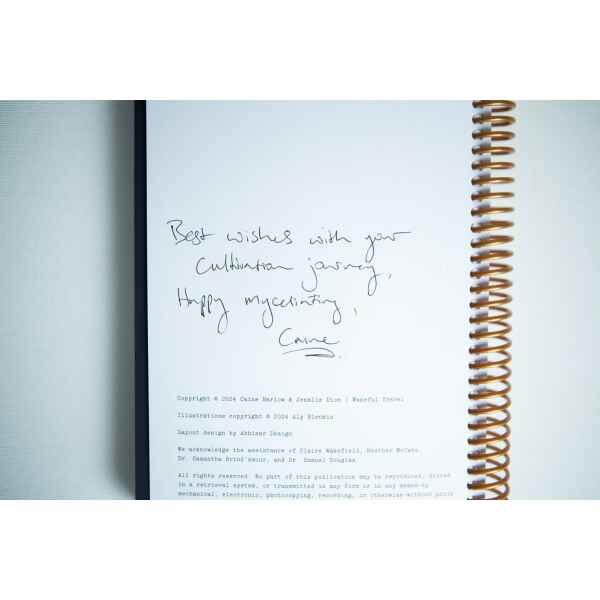 Best wishes with your
Cultivation journey,
Happy myceliating,
Caine
Copyright © 2024 Caine Barlow & Jennlie Dion | Wakeful Travel
Illustrations copyright © 2024 Aly Blenkin
Layout design by Abhiser Design
We acknowledge the assistance of Claire Wakefield, Heather McCabe,
Dr. Samantha and Dr. Samuel Douglas
All rights reserved. No part of this publication may be reproduced, stored
in a retrieval system, or transmitted in any form or in any means—by
mechanical, electronic, photocopying, recording, or otherwise—without prior